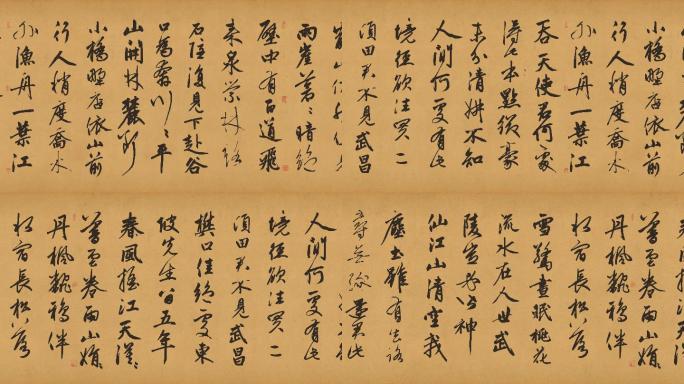 小橋野店依山前
行人稍度喬木
外漁舟一葉江
吞天使君何處
得此本點綴豪
末分清妍不知
人間何處有此
境徑欲往買二
頃田君不見武昌
兩崖蒼蒼暗絕
壁中有百道飛
來泉縈林絡
石隱復見下赴谷
口為奔川川平
山開林麓斷
小橋野店依山前
行人稍度喬木
外漁舟一葉江
暮雲卷雨山娟娟
丹楓翻鴉伴
水宿長松落
雪驚晝眠桃花
流水在人世武
陵豈必皆神
仙江山清空我
塵土雖有去路
尋無緣還君此
人間何處有此
境徑欲往買二
頃田君不見武昌
樊口佳絕處東
坡先生留五年
春風搖江天漠漠
暮雲卷雨山娟娟
丹楓翻鴉伴
水宿長松落